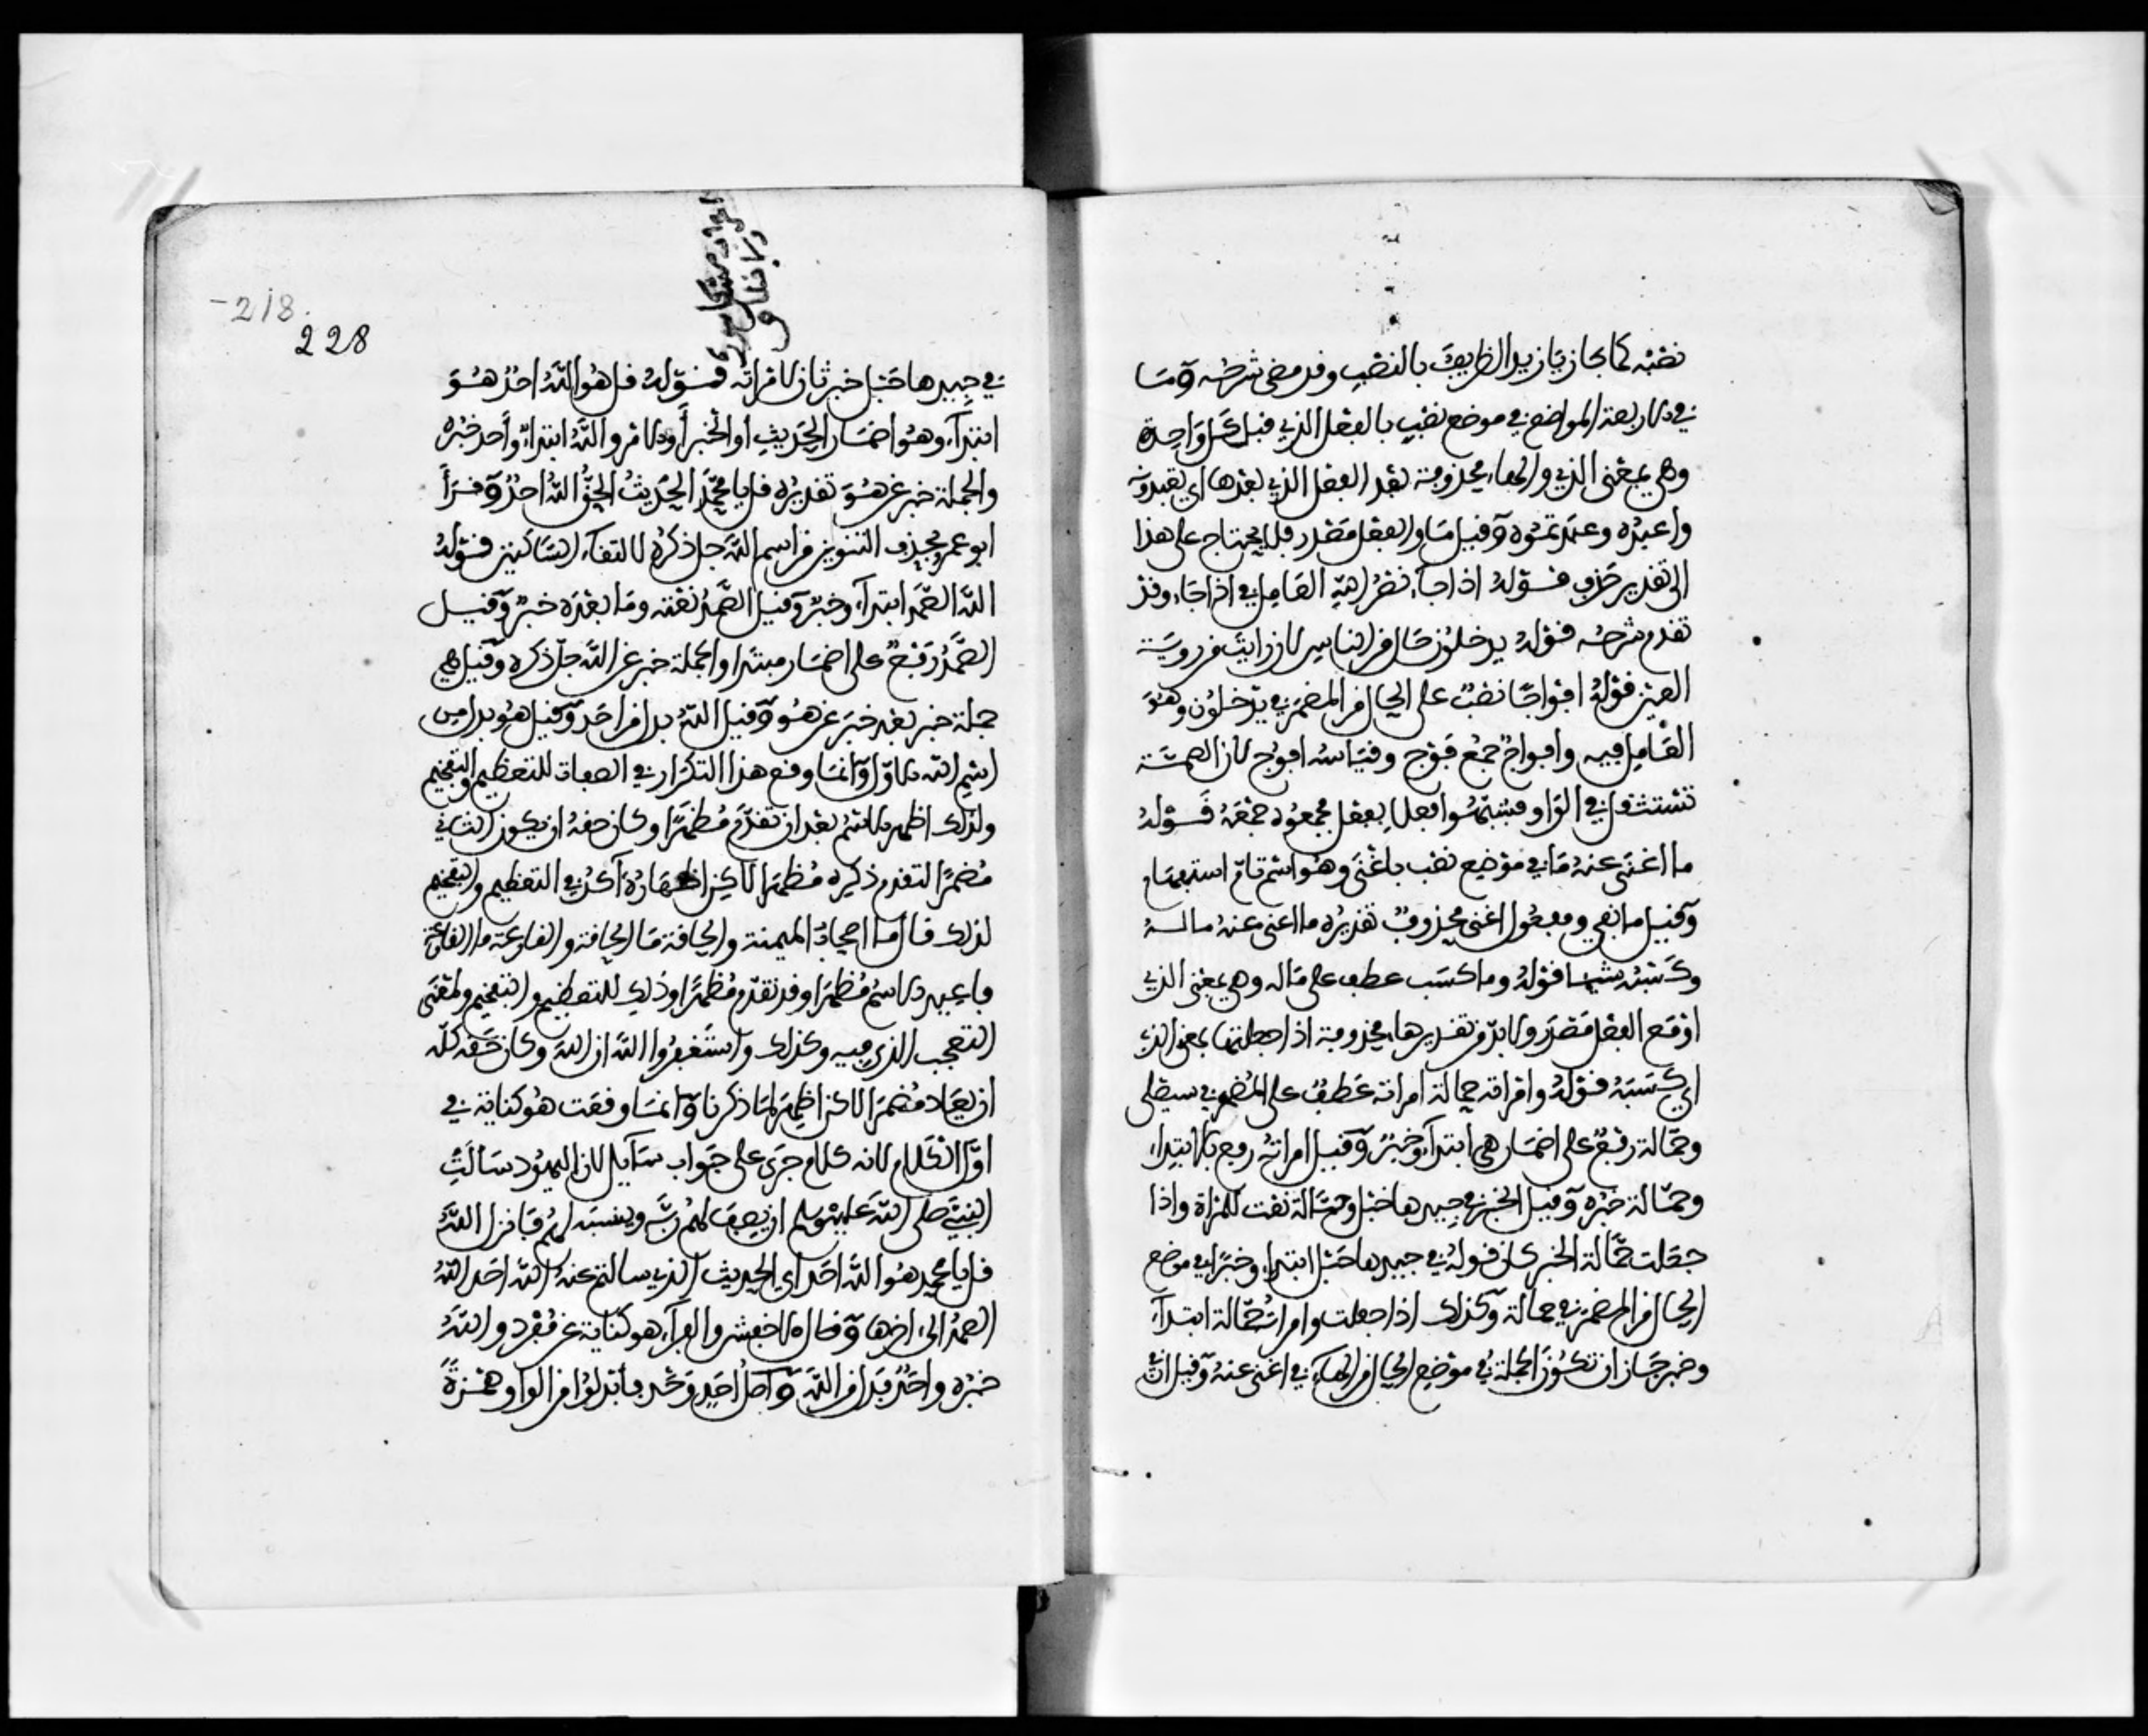 نصبه كما جاز يا زيد الظريف بالنصب وقد مضى شرحه وما
في الاربعة المواضع في موضع نصب بالفعل الذي قبل كل واحدة
وهي بمعنى الذي والهاء محذوفة بعد الفعل الذي بعدها اي تعبدونه
واعبده وعبدتموه وقيل ما والفعل مصدر فلا يحتاج على هذا
الى تقدير حذف قوله اذا جاء نصر الله العامل في اذا جاء وقد
تقدم شرحه قوله يدخلون حال من الناس لان رايت من روية
العين قوله افواجا نصب على الحال من المضمر في يدخلون وهو
العامل فيه وافواج جمع فوج وقياسه افوج لان الضمة
تستثقل في الواو فشبهوا فعلا بفعل فجمعوه جمعه قوله
ما اغنى عنه ما في موضع نصب باغنى وهو اسم تام استفهام
وقيل ما نفي ومفعول اغنى محذوف تقديره ما اغنى عنه ماله
وكسبه شيا قوله وما كسب عطف على ماله وهي بمعنى الذي
او مع الفعل مصدر ولا بد من تقدير هاء محذوفة اذا جعلتها بمعنى الذي
اي كسبه قوله وامراته حمالة امراته عطف على المضمر في سيصلى
وحمالة رفع على اضمار هي ابتداء وخبر وقيل امراته رفع بالابتداء
وحمالة خبره وقيل الخبر في جيدها حبل وحمالة نعت للمراة واذا
جعلت حمالة الخبر كان قوله في جيدها حبل ابتداء وخبرا في موضع
الحال من المضمر في حمالة وكذلك اذا جعلت وامراته حمالة ابتداء
وخبر جاز ان تكون الجملة في موضع الحال من الهاء في اغنى عنه وقيل ان
218
228
في جيدها حبل خبر ثان لامراته قوله قل هو الله احد هو
ابتداء وهو اضمار الحديث او الخبر او الامر والله ابتداء واحد خبره
والجملة خبر عن هو تقديره قل يا محمد الحديث الحق الله احد وقرا
ابو عمرو بحذف التنوين من اسم الله جل ذكره لالتقاء الساكنين قوله
الله الصمد ابتداء وخبر وقيل الصمد نعته وما بعده خبر وقيل
الصمد رفع على اضمار مبتدا والجملة خبر عن الله جل ذكره وقيل هي
جملة خبر بعد خبر عن هو وقيل الله بدل من احد وقيل هو بدل من
اسم الله الاول وانما وقع هذا التكرار في الصفات للتعظيم والتفخيم
ولذلك اظهر الاسم بعد ان تقدم مظهرا وكان حقه ان يكون الثاني
مضمرا لتقدم ذكره مظهرا لاكن اظهاره آكد في التعظيم والتفخيم
لذلك قال ما اصحاب الميمنة والحاقة ما الحاقة والقارعة ما القارعة
فاعيد الاسم مظهرا وقد تقدم مظهرا وذلك للتعظيم والتفخيم ولمعنى
التعجب الذي فيه وكذلك واستغفروا الله ان الله وكان حقه كله
ان يعاد مضمرا لاكن اظهر لما ذكرنا وانما وقعت هو كناية في
اول الكلام لانه كلام جرى على جواب سايل لان اليهود سالت
النبي صلى الله عليه وسلم ان يصف لهم ربه وينسبه لهم فانزل الله
قل يا محمد هو الله احد اي الحديث الذي سالتم عنه الله احد الله
الصمد الى اخرها وقال الاخفش والفراء هو كناية عن مفرد والله
خبره واحد بدل من الله واصل احد وحد فابدلوا من الواو همزة